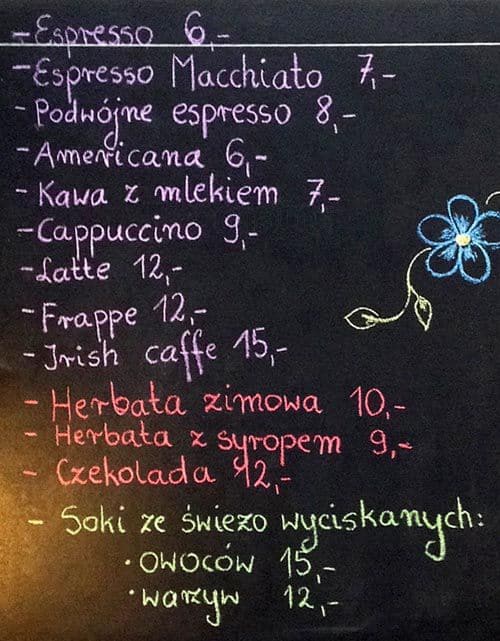 - Espresso 6,-
- Espresso Macchiato 7,-
- Podwójne espresso 8,-
- Americana 6,-
- Kawa z mlekiem 7,-
- Cappuccino 9,-
- Latte 12,-
- Frappe 12,-
- Irish caffe 15,-
- Herbata zimowa 10,-
- Herbata z syropem 9,-
- Czekolada 12,-
- Soki ze świeżo wyciskanych:
• owoców 15,-
• warzyw 12,-